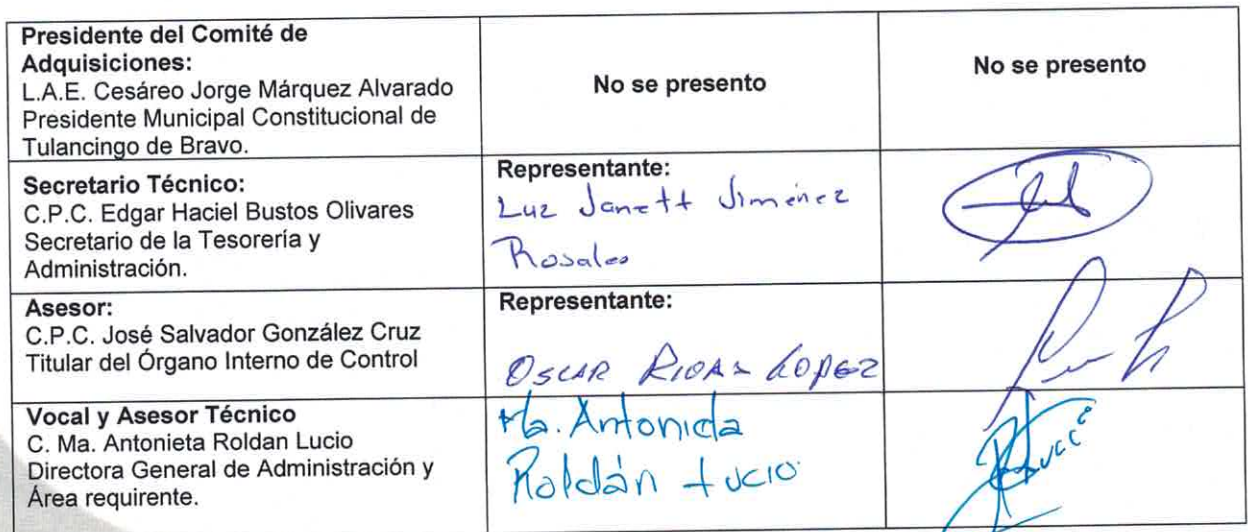 Presidente del Comité de
Adquisiciones:
L.A.E. Cesáreo Jorge Márquez Alvarado
Presidente Municipal Constitucional de
Tulancingo de Bravo.
No se presento
No se presento
Secretario Técnico:
C.P.C. Edgar Haciel Bustos Olivares
Secretario de la Tesorería y
Administración.
Representante:
Luz Janett Jiménez
Rosales
Asesor:
C.P.C. José Salvador González Cruz
Titular del Órgano Interno de Control
Representante:
OSCAR LOPEZ
Vocal y Asesor Técnico
C. Ma. Antonieta Roldan Lucio
Directora General de Administración y
Área requirente.
Ma. Antonieta
Roldán Lucio